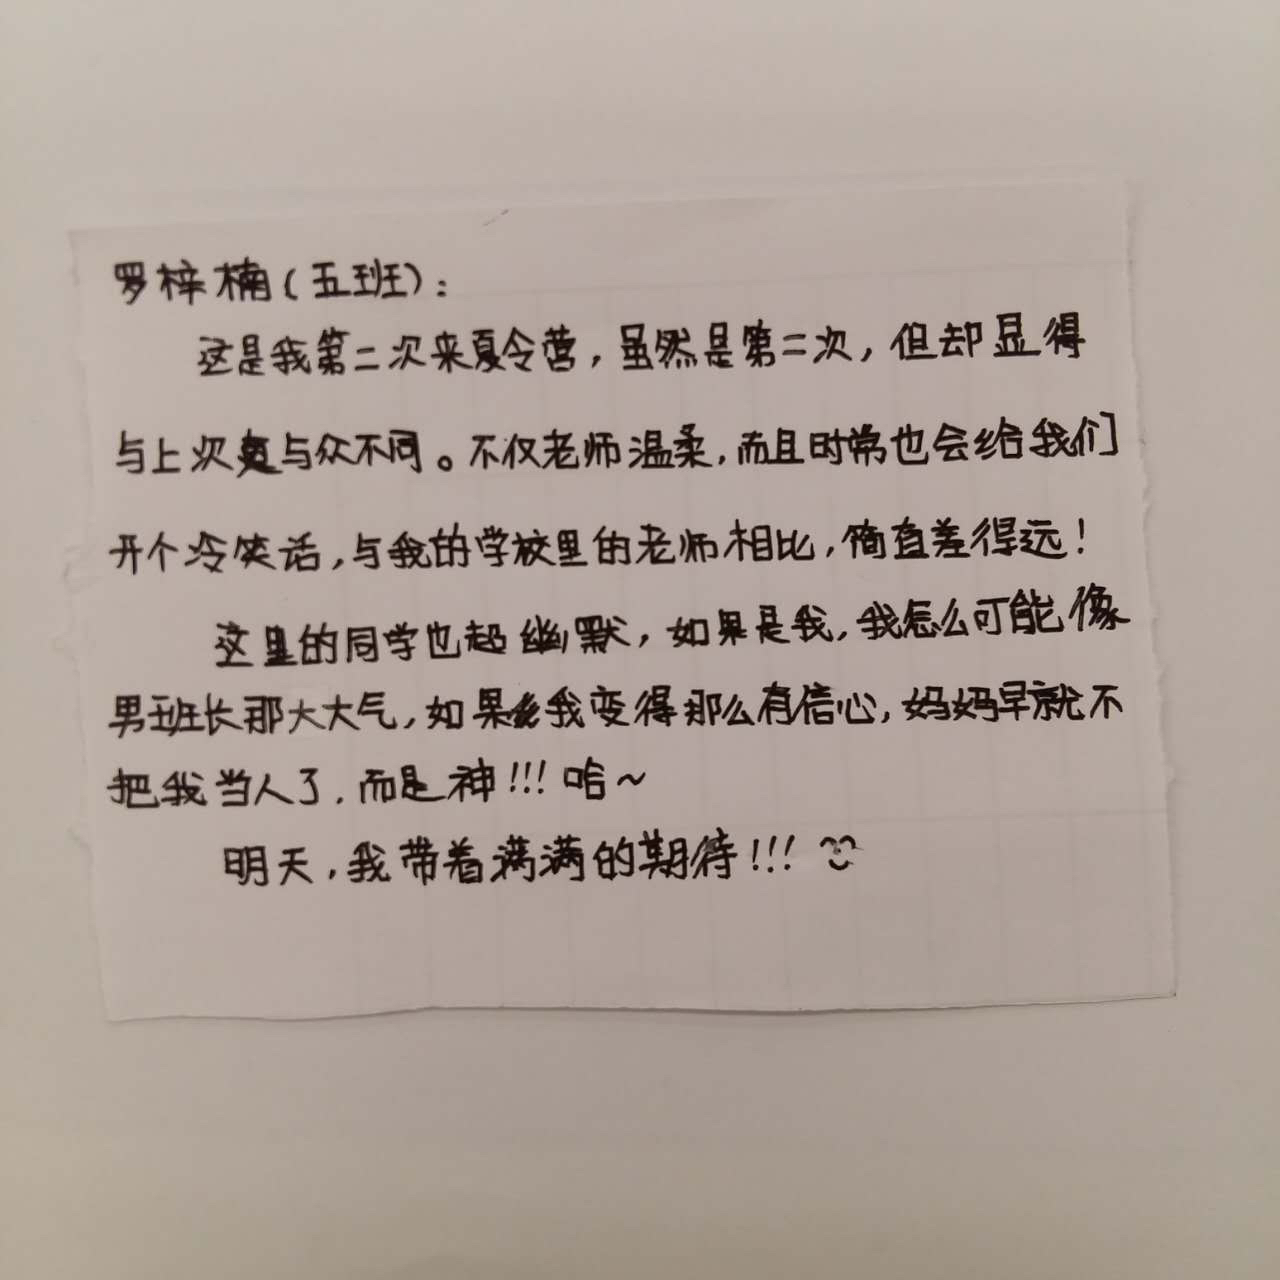 罗梓楠(五班):
这是我第二次来夏令营,虽然是第二次,但却显得
与上次与众不同。不仅老师温柔,而且时常也会给我们
开个冷笑话,与我的学校里的老师相比,简直差得远!
这里的同学也超幽默,如果是我,我怎么可能像
男班长那大大气,如果我变得那么有信心,妈妈早就不
把我当人了,而是神!!!哈~
明天,我带着满满的期待!!!